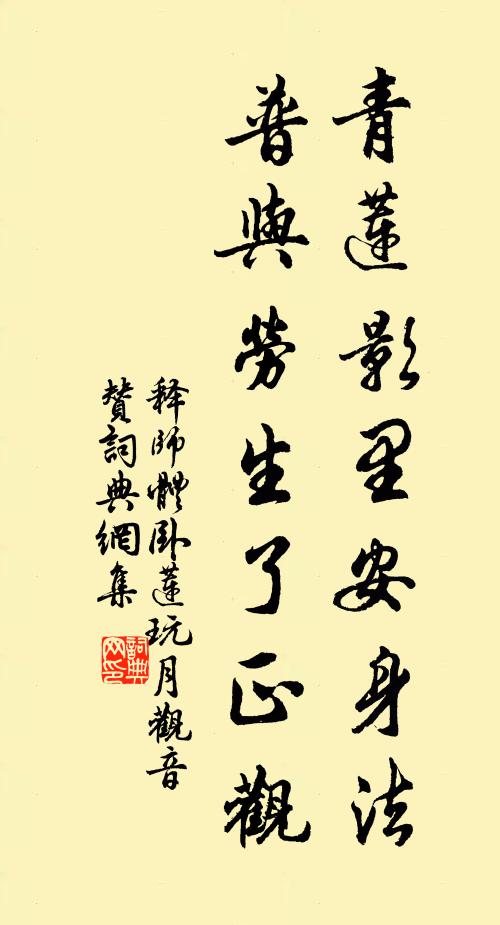 青蓮影里安身法
普與勞生了正觀
释師體卧蓮玩月觀音
贊詞典網集
詞典網印